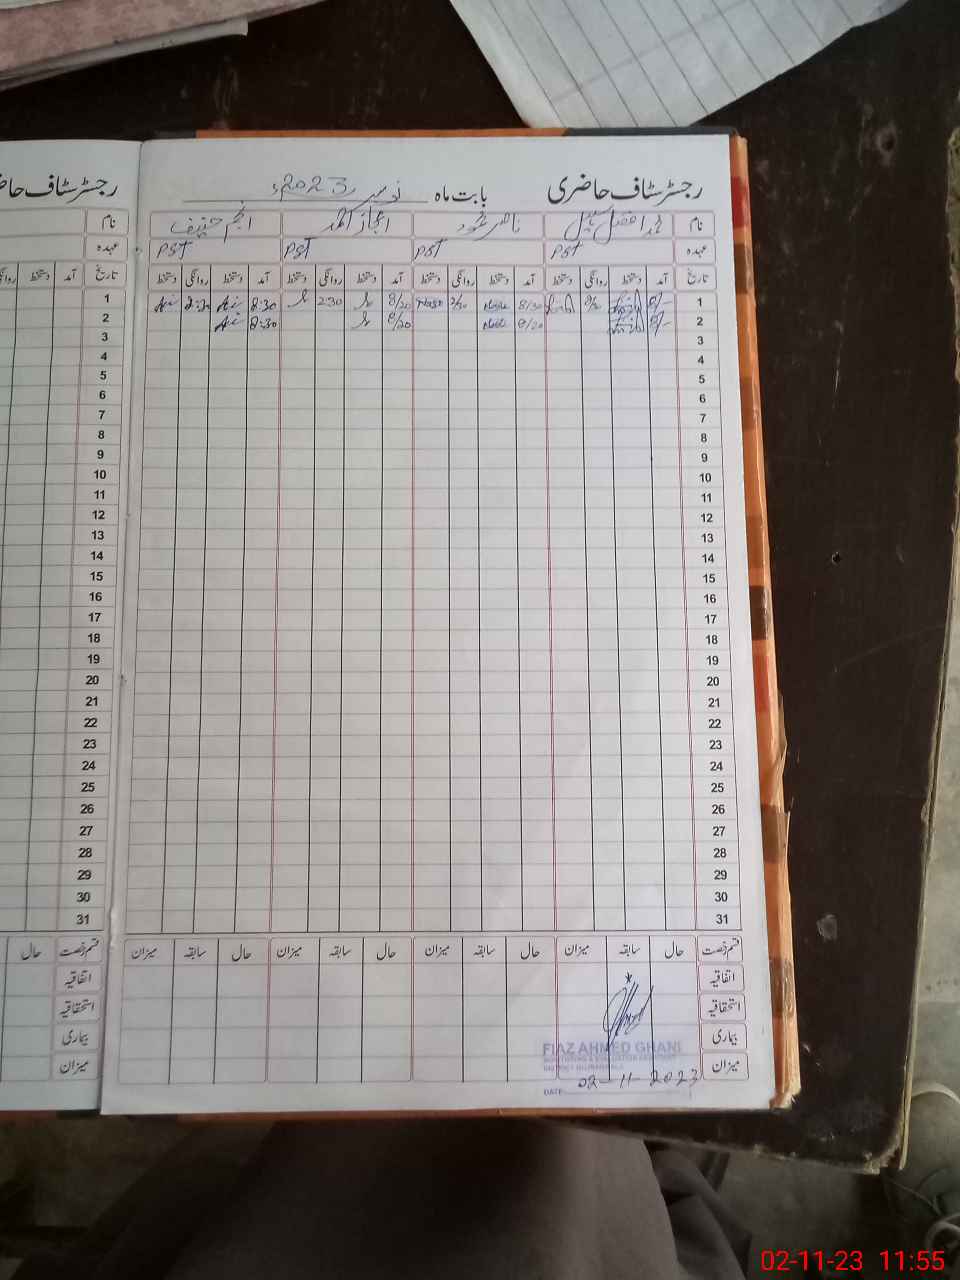 رجسٹر سٹاف حاضری بابت ماہ نومبر 2023ء
نام ناصر محمود اعجاز احمد انجم حنیف
عہدہ PST PST PST PST
تاریخ آمد دستخط روانگی دستخط آمد دستخط روانگی دستخط آمد دستخط روانگی دستخط آمد دستخط روانگی دستخط
1 8/30 2/30 8/20 2:30 8:30 2:30 1
2 8/20 8/20 8:30 2
3 3
4 4
5 5
6 6
7 7
8 8
9 9
10 10
11 11
12 12
13 13
14 14
15 15
16 16
17 17
18 18
19 19
20 20
21 21
22 22
23 23
24 24
25 25
26 26
27 27
28 28
29 29
30 30
31 31
قسم رخصت حال سابقہ میزان حال سابقہ میزان حال سابقہ میزان حال سابقہ میزان قسم رخصت حال
اتفاقیہ اتفاقیہ
استحقاقیہ استحقاقیہ
بیماری بیماری
میزان میزان
FIAZ AHMED GHANI
DATE 02-11-2023
02-11-23 11:55